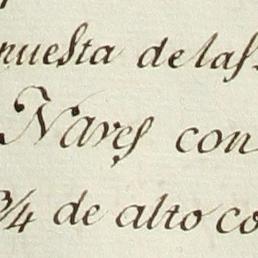 nuesta de las
Naves con
3/4 de alto co